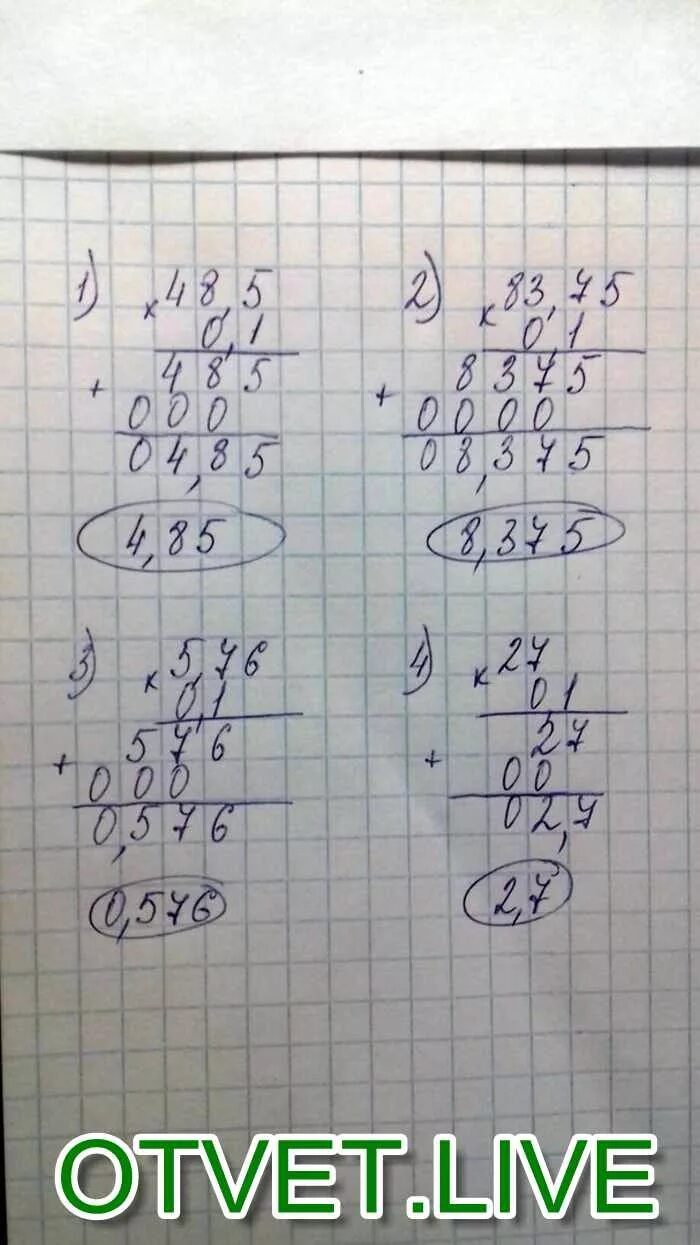 1) × 48,5
0,1
+ 485
000
04,85
4,85
2) × 83,75
0,1
+ 8375
0000
08,375
8,375
3) × 5,76
0,1
+ 576
000
0,576
0,576
4) × 27
01
+ 27
00
02,7
2,7
OTVET.LIVE